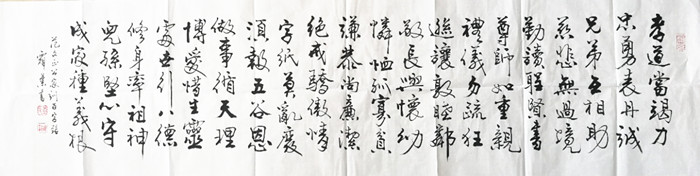 孝道當竭力
忠勇表丹誠
兄弟互相助
慈悲無過境
勤讀聖賢書
尊師如重親
禮義勿疏狂
遜讓敦睦鄰
敬長與懷幼
憐恤孤寡貧
謙恭尚廉潔
絕戒驕傲情
字紙莫亂廢
須報五谷恩
做事循天理
博愛惜生靈
處世行八德
修身率祖神
兒孫堅心守
成家種義根
范文正公家訓百字銘